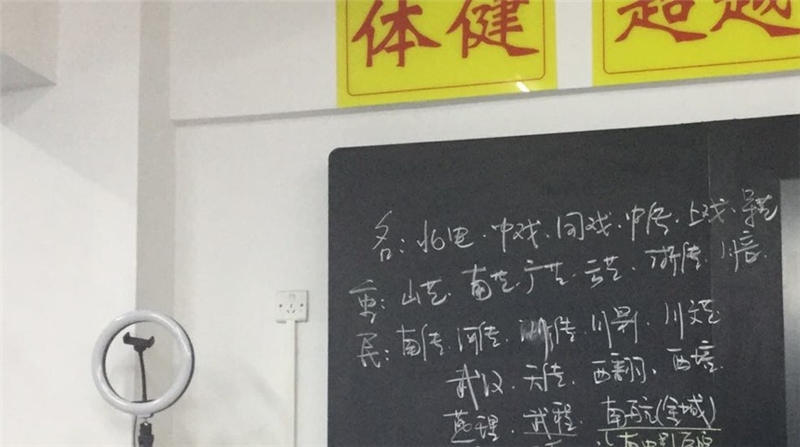 体健 超越
名: 北电、中戏、国戏、中传、上戏、军艺
重: 山艺、南艺、广艺、云艺、浙传、川音
民: 南传、河传、川影、川文艺
武汉、天传、西翻、西培
燕理、武程、南航(金城)